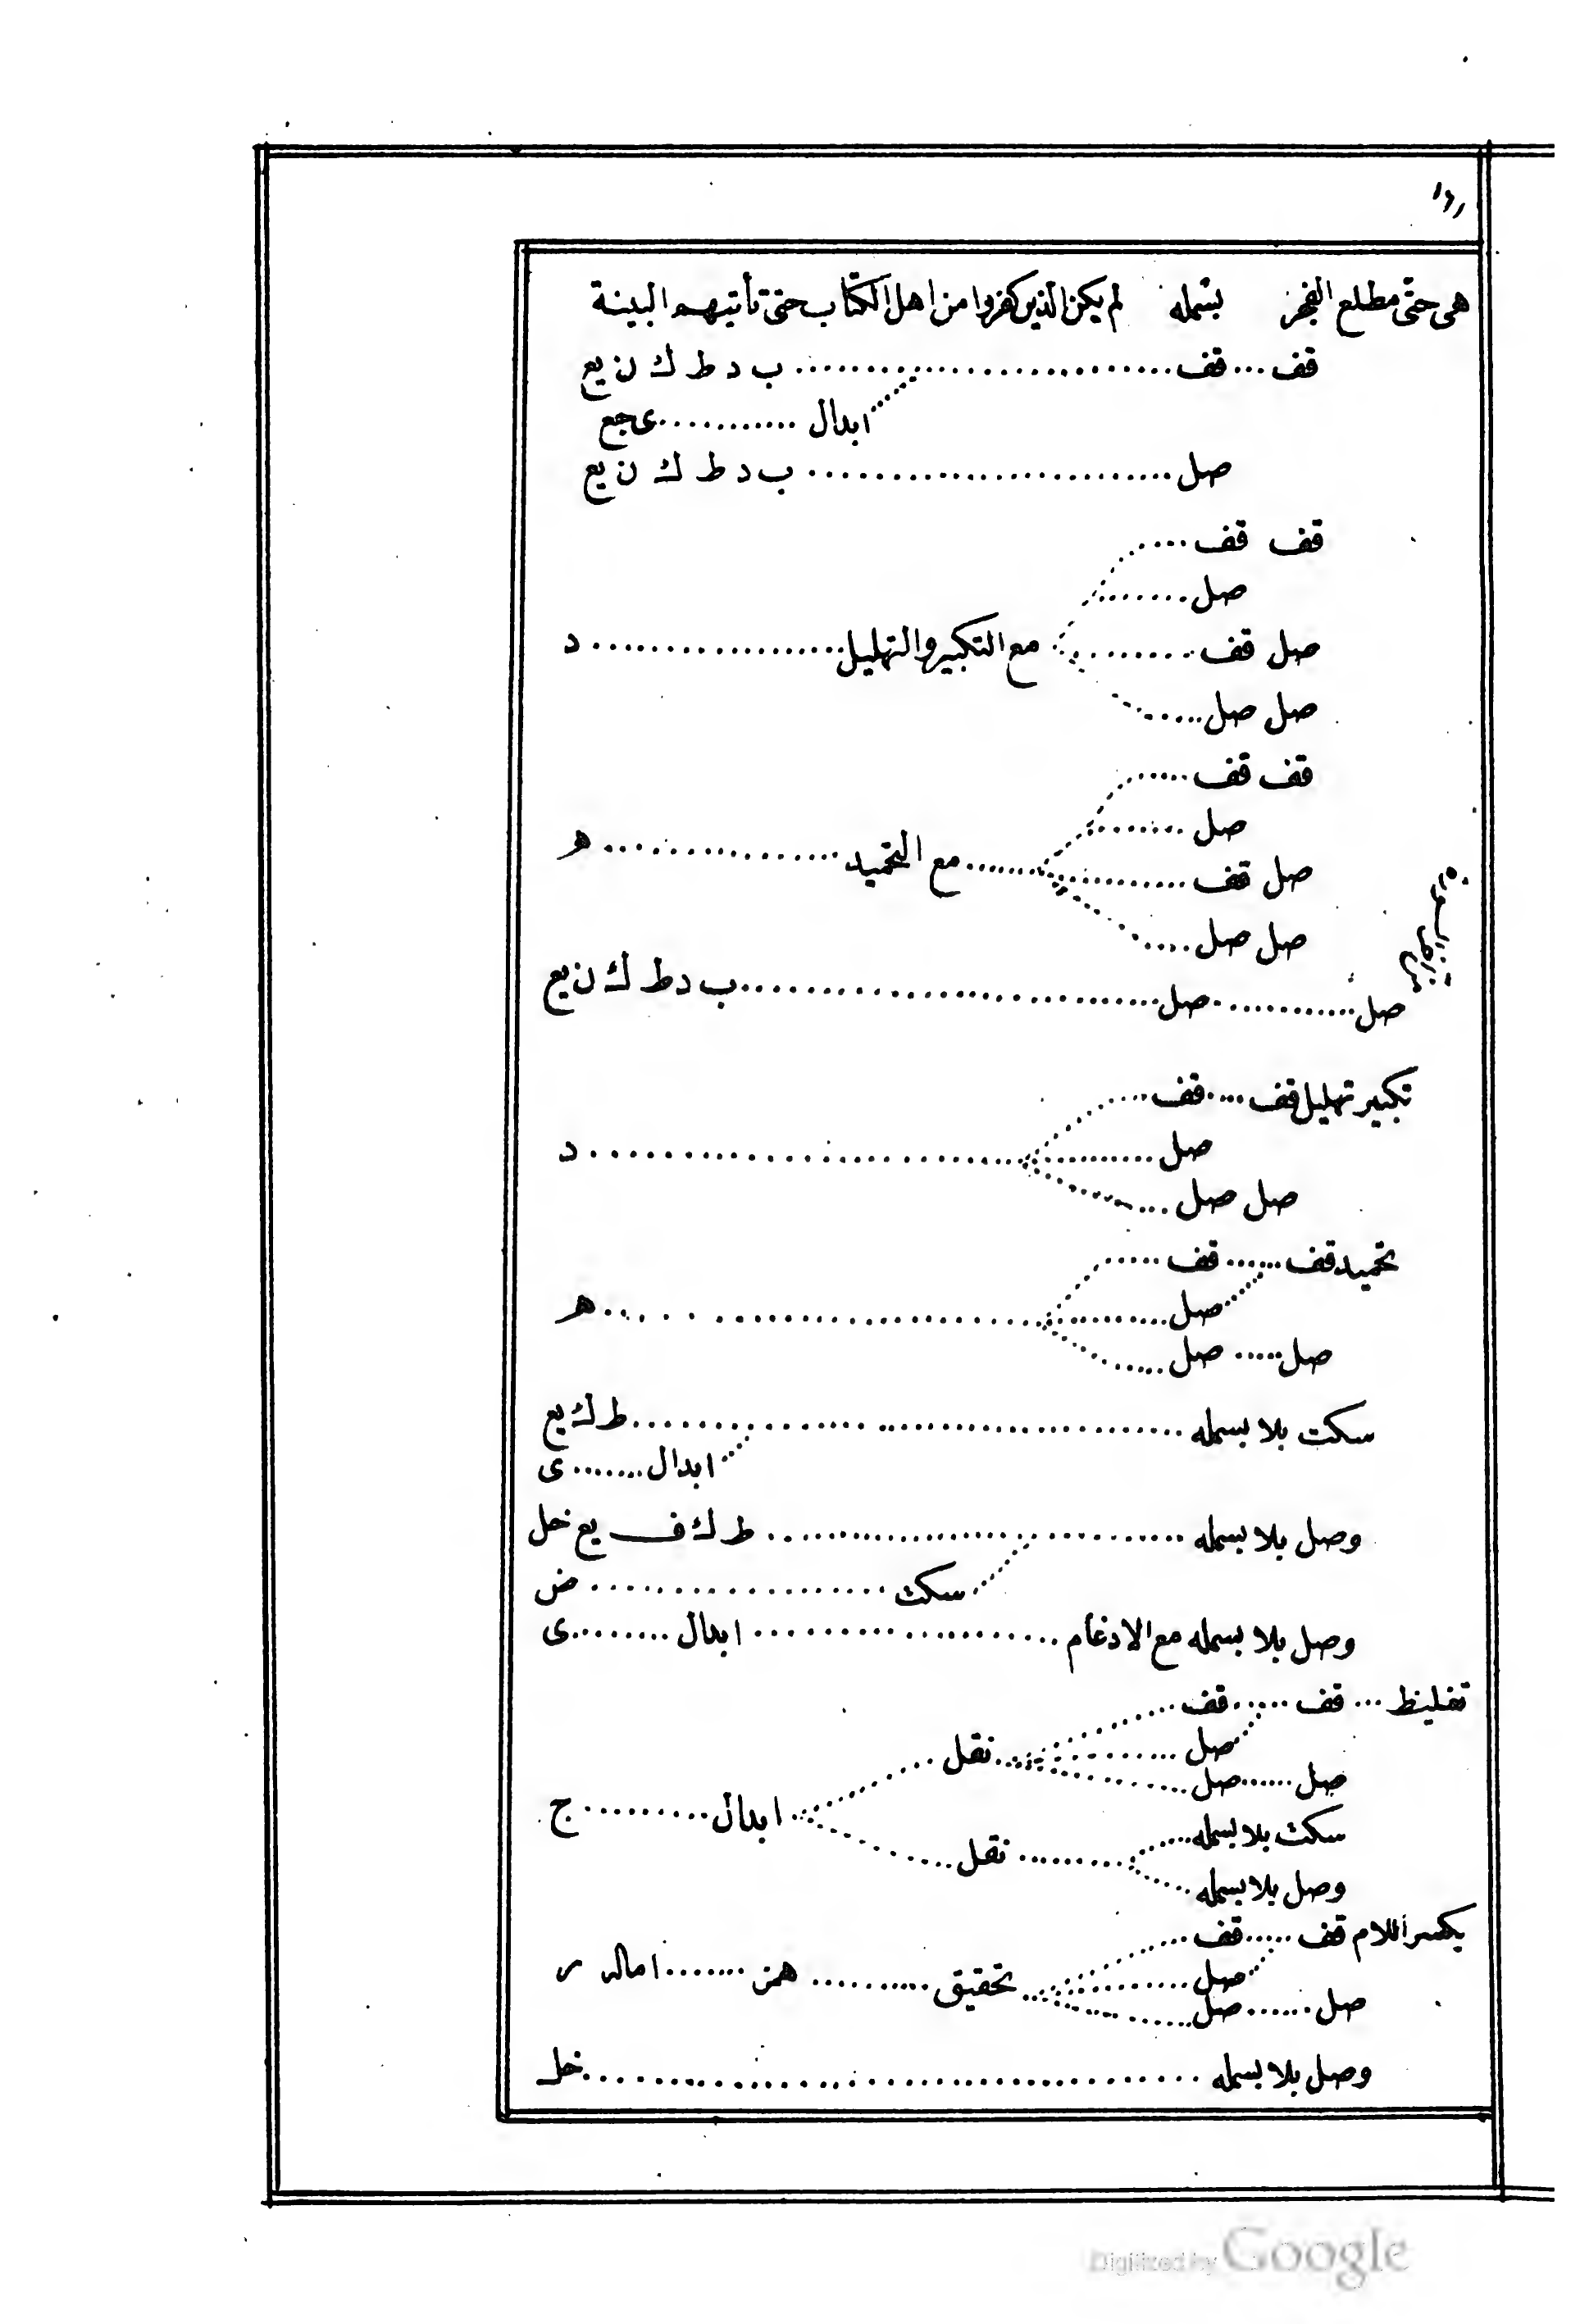 هى حتى مطلع الفجر بسمله لم يكن الذين كفروا من اهل الكتاب حتى تأتيهم البينة
قف ... قف ... ب د ط ك ن يع
ابدال ... ى جع
صل ... ب د ط ك ن يع
قف قف ...
صل ...
صل قف ... مع التكبير والتهليل ... د
صل صل ...
قف قف ...
صل ...
صل قف ... مع التحميد ... هـ
صل صل ...
صل ... صل ... ب د ط ك ن يع
تكبير تهليل قف ... قف ...
صل ... د
صل صل ...
تحميد قف ... قف ...
صل ... هـ
صل ... صل ...
سكت بلا بسمله ... ط ك يع
ابدال ... ى
وصل بلا بسمله ... ط ك ف يع خل
سكت ... ض
وصل بلا بسمله مع الادغام ... ابدال ... ى
تغليظ ... قف ... قف ...
صل ... نقل ...
صل ... صل ...
ابدال ... ج
سكت بلا بسمله ...
نقل ...
وصل بلا بسمله ...
بكسر اللام قف ... قف ...
صل ... تحقيق ... همز ... اماله ر
صل ... صل ...
وصل بلا بسمله ... خل
Digitized by Google